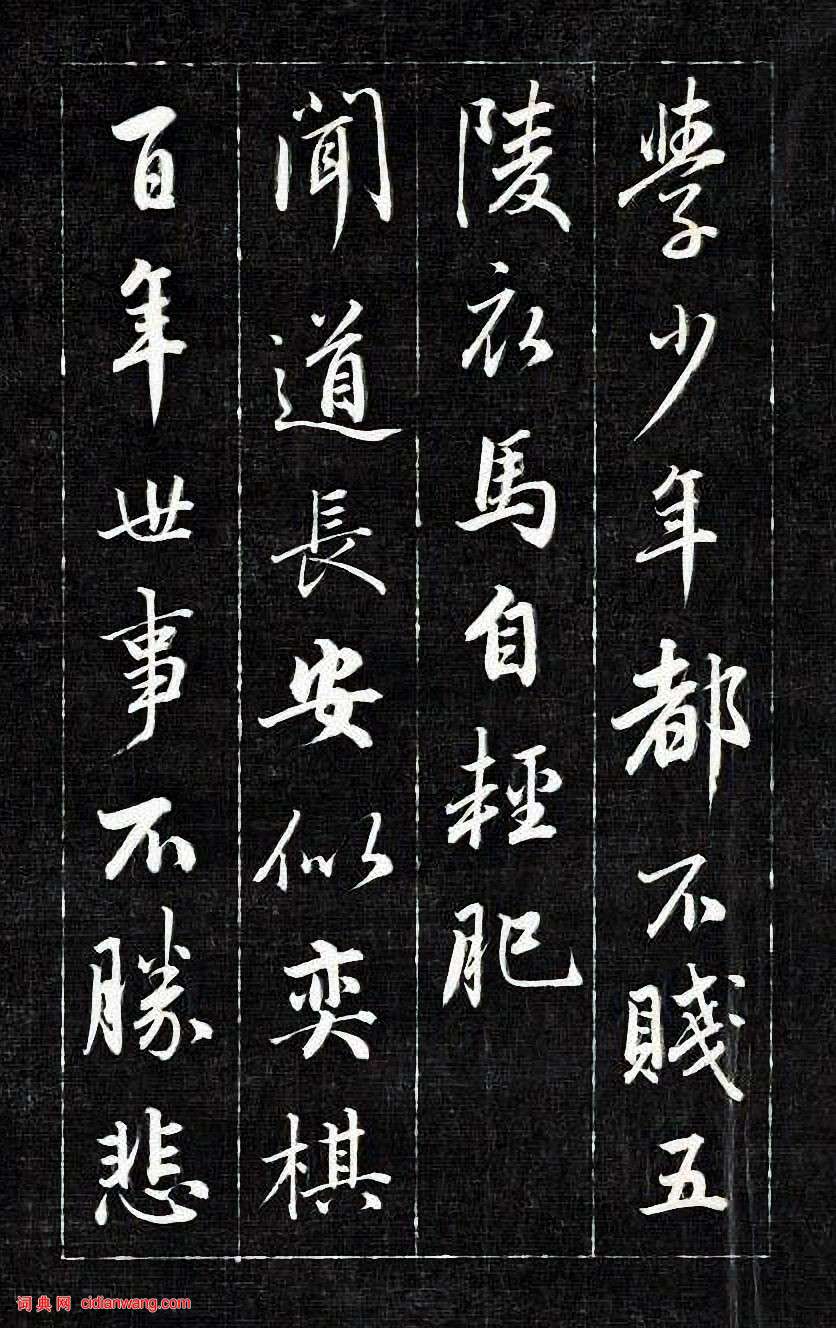 學少年都不賤五
陵衣馬自輕肥
聞道長安似奕棋
百年世事不勝悲
词典网 cidianwang.com